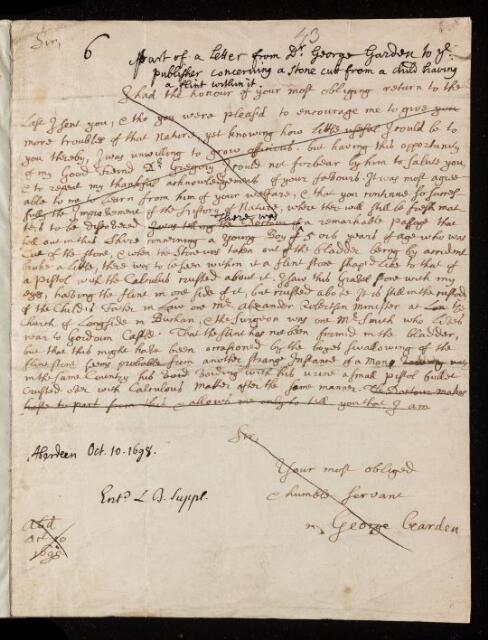 43
Sir,
6
A part of a Letter from Dr. George Garden to ye
publisher concerning a stone cut from a child having
a flint within it
I had the honour of your most obliging return to the
last I sent you, & tho you were pleas'd to encourage me to give you
more troubles of that Nature, yet knowing how little usefull I could be to
you thereby, I was unwilling to grow officious. but having this opportunity
of my Good Friend Dr Gregory I could not forbear by him to salute you,
& to repeat my thankfull acknowledgements of your favours. It was most agree
able to me to learn from him of your welfare, & that you continue so
fully the Improvement of the History of Nature, where ther will still be fresh mat
ter to be discovered
There was
a remarkable passage that
fell out in this Shire concerning a Young Boy of 5 or 6 years of age who was
Cut of the stone, & when the stone was taken out of the bladder being by accident
broke a little, there was to be seen within it a flint stone shap'd like to that of
a Pistol with the Calculus crusted about it. I saw this Gravel stone with my
eyes, having the flint in one side of it, but crusted above. It is still in the custody
of the Child's Father in Mr. Alexander Robertson Minister at
Church of Longside in Buchan, & the Surgeon was one Mr. Smith who lives
near to Gordoun Castle. That the flint has not been formed in the bladder,
but that this might have been occasioned by the boyes swallowing of the
flint stone seems probable from another strange Instance of a Man
in the same Country his voiding with his urine a small pistol bullet
Crusted over with Calculous matter after the same manner. The Bearour makes
haste to part from this & allows me only to tell you that I am
Sir,
Aberdeen Oct. 10. 1698.
Your most obliged
& humble Servant
Entd L. B. Suppl.
George Garden
Abd
Oct 10
1698